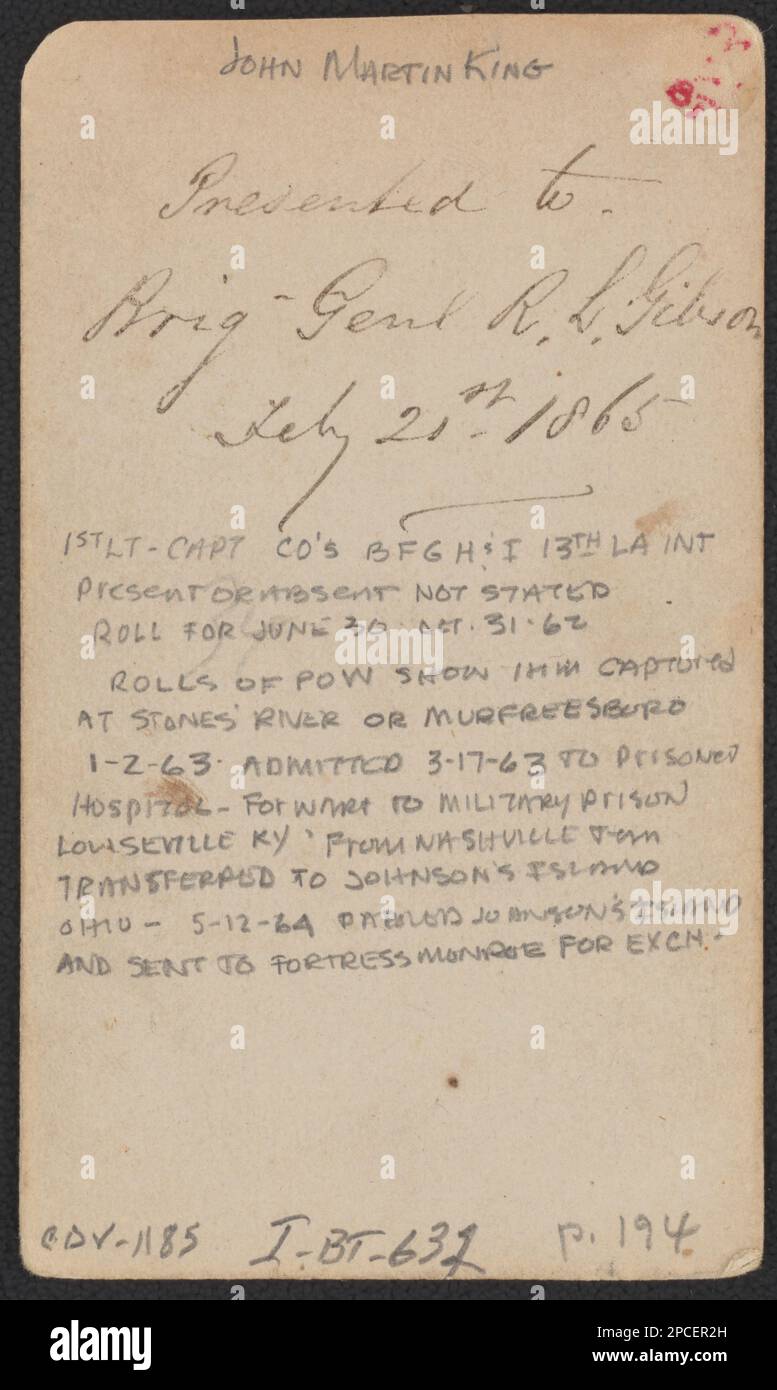 JOHN MARTIN KING
Presented to.
Brig-Genl R. L. Gibson
Feby 21st 1865
1ST LT - CAPT CO'S B F G H & I 13TH LA INT
PresenT Or ABSENT NOT STATED
ROLL FOR JUNE 30 - OCT. 31-62
ROLLS OF POW SHOW HIM CAPTURED
AT STONES' RIVER OR MURFREESBURO
1-2-63. ADMITTED 3-17-63 TO PrISONER
HOSPITOL - FOrWArd TO MILITARY PrISON
LOUISEVILLE KY' From NASHVILLE Tenn
TRANSFERRED TO JOHNSON'S ISLAND
OHIO - 5-12-64 PAROLED JOHNSON'S ISLAND
AND SENT TO FORTRESS MONROE FOR EXCH.
CDV-1185 I-BT-632 p. 194
alamy
Image ID: 2PCER2H
www.alamy.com